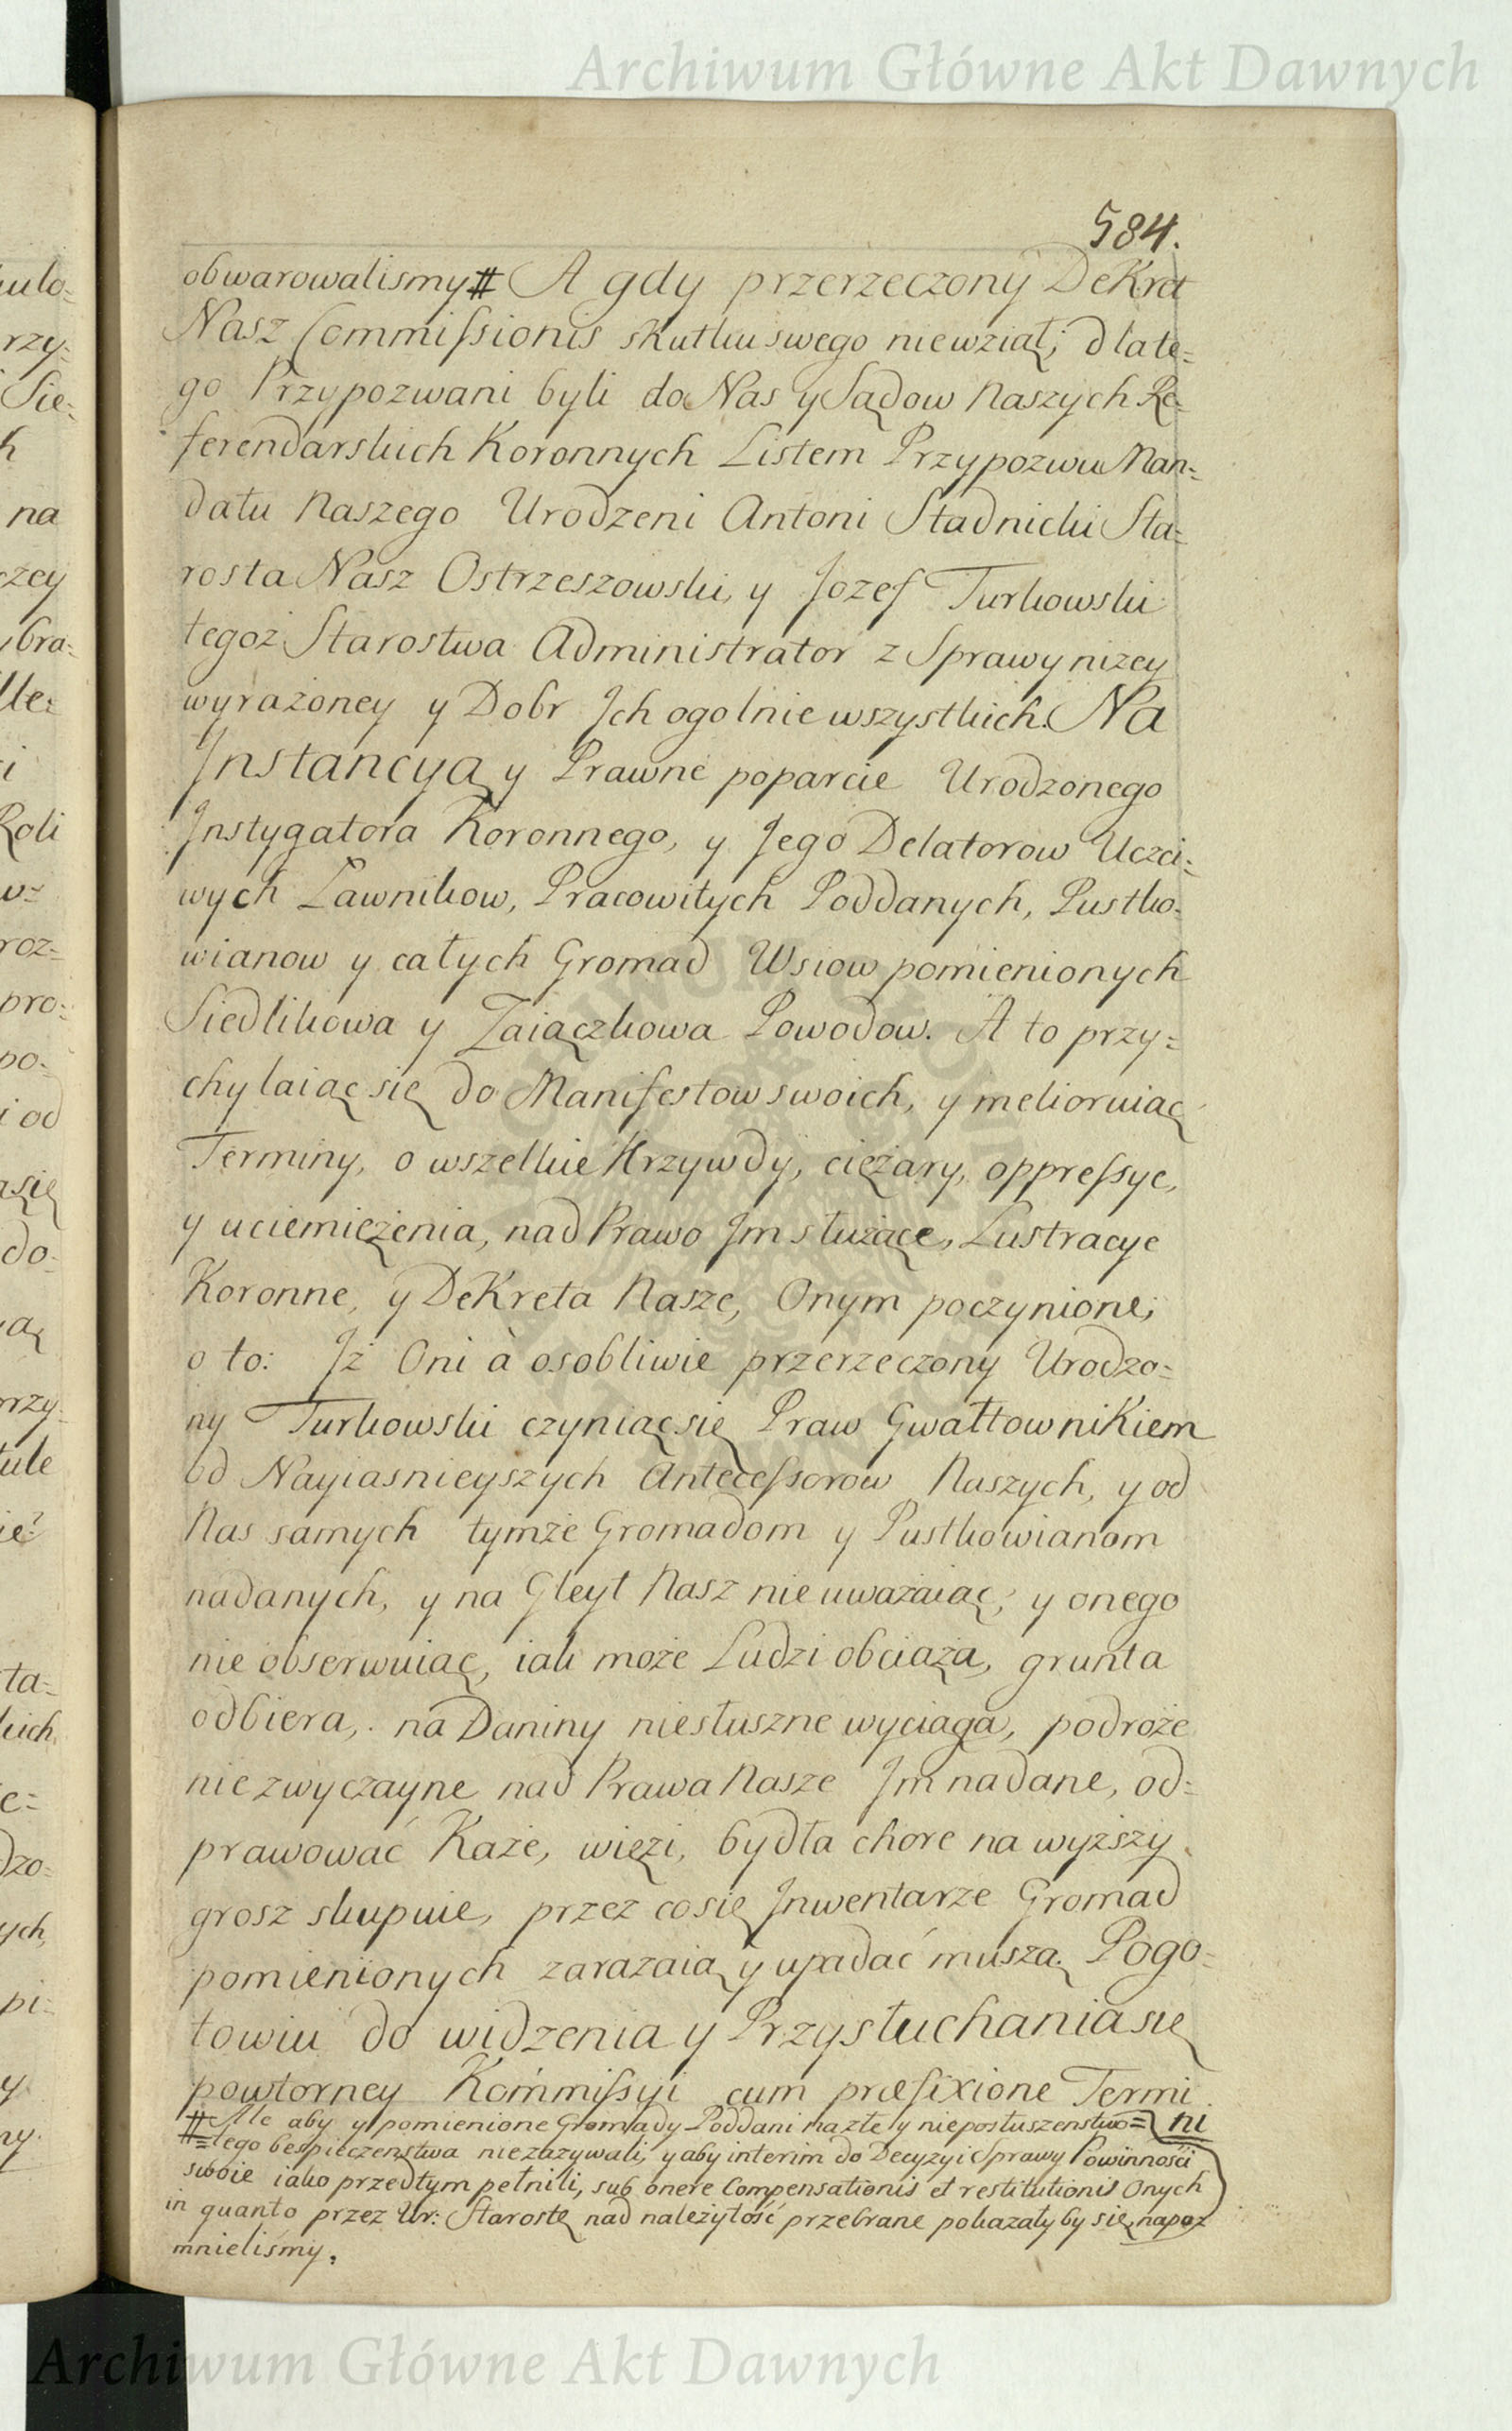 Archiwum Główne Akt Dawnych
584.
obwarowalismy # A gdy przerzeczony DeKret
Nasz Commissionis skutku swego niewziął; dlate=
go Przypozwani byli do Nas y Sądow Naszych Re=
ferendarskich Koronnych Listem Przypozwu Man=
datu Naszego Urodzeni Antoni Stadnicki Sta=
rosta Nasz Ostrzeszowski, y Jozef Turkowski
tegoż Starostwa Administrator z Sprawy niżey
wyrażoney y Dobr Jch ogolnie wszystkich. Na
Jnstancyą y Prawne poparcie Urodzonego
Jnstygatora Koronnego, y Jego Delatorow Uczci=
wych Ławnikow, Pracowitych Poddanych, Pustko=
wianow y całych Gromad Wsiow pomienionych
Siedlikowa y Zaiączkowa Powodow. A to przy=
chylaiąc się do Manifestow swoich, y melioruiąc
Terminy, o wszelkie Krzywdy, ciężary, oppressye,
y uciemiężenia, nad Prawo Jm służące, Lustracye
Koronne, y DeKreta Nasze, Onym poczynione;
o to: Jż Oni à osobliwie przerzeczony Urodzo=
ny Turkowski czyniąc się Praw GwałtowniKiem
od Nayiasnieyszych Antecessorow Naszych, y od
Nas samych tymże Gromadom y Pustkowianom
nadanych, y na Gleyt Nasz nie uważaiąc, y onego
nie obserwuiąc, iak może Ludzi obciąża, grunta
odbiera, na Daniny niesłuszne wyciąga, podroże
niezwyczayne nad Prawa Nasze Jm nadane, od=
prawować Każe, więzi, bydła chore na wyższy
grosz skupuie, przez co się Jnwentarze Gromad
pomienionych zarażaią y upadać muszą. Pogo=
towiu do widzenia y Przysłuchania się
powtorney Kommissyi cum præfixione Termi
ni
# Ale aby y pomienione Gromady Poddani na złe y nieposłuszenstwo=
=tego bespieczenstwa niezażywali, y aby interim do Decyzyi Sprawy Powinności
swoie iako przedtym pełnili, sub onere Compensationis et restitutionis Onych
in quanto przez Ur: Starostę nad należytość przebrane pokazałyby się, napoz
mnieliśmy.
Archiwum Główne Akt Dawnych